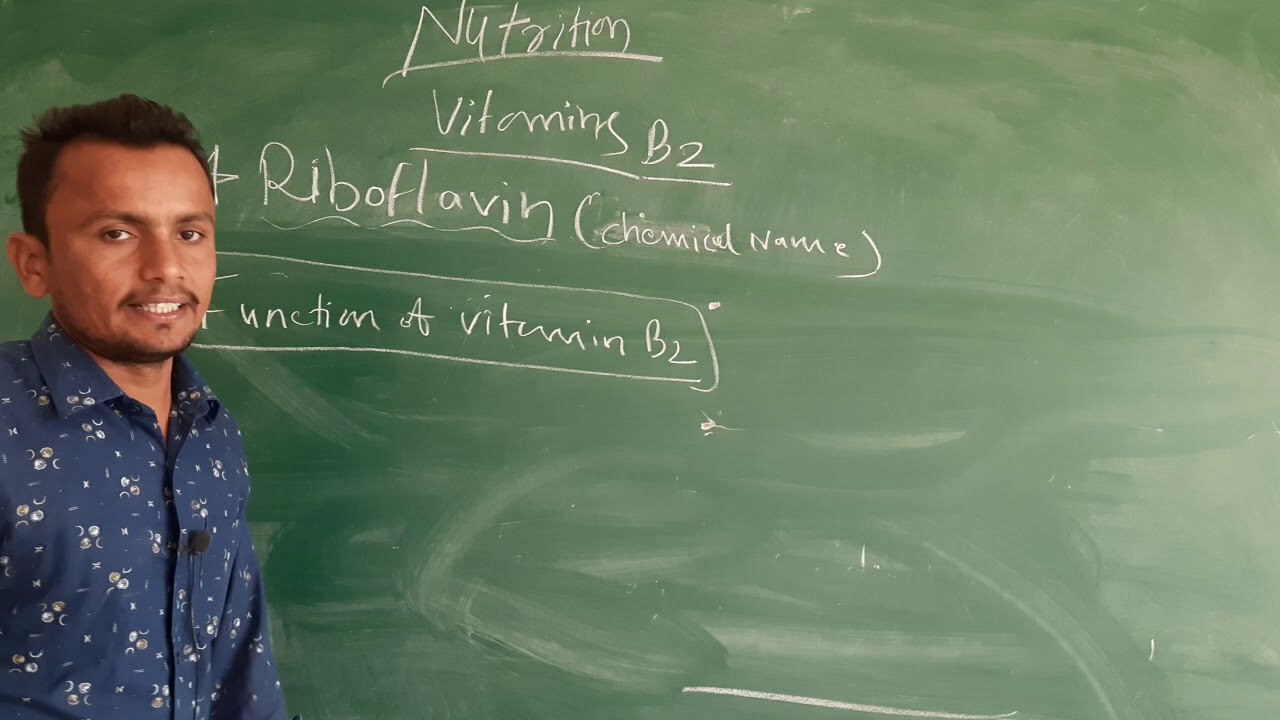 Nutrition
Vitamins B2
Riboflavin (chemical Name)
Function of vitamin B2